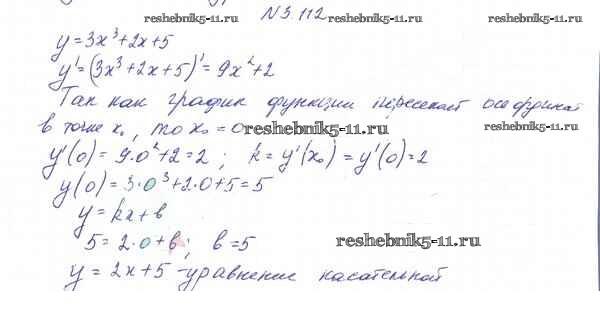 №3.112
reshebnik5-11.ru
y=3x³+2x+5
y'=(3x³+2x+5)'=9x²+2
Так как график функции пересекает ось ординат
в точке x₀, то x₀=0
reshebnik5-11.ru
reshebnik5-11.ru
y'(0)=9·0²+2=2; k=y'(x₀)=y'(0)=2
y(0)=3·0³+2·0+5=5
y=kx+b
5=2·0+b; b=5
reshebnik5-11.ru
y=2x+5-уравнение касательной